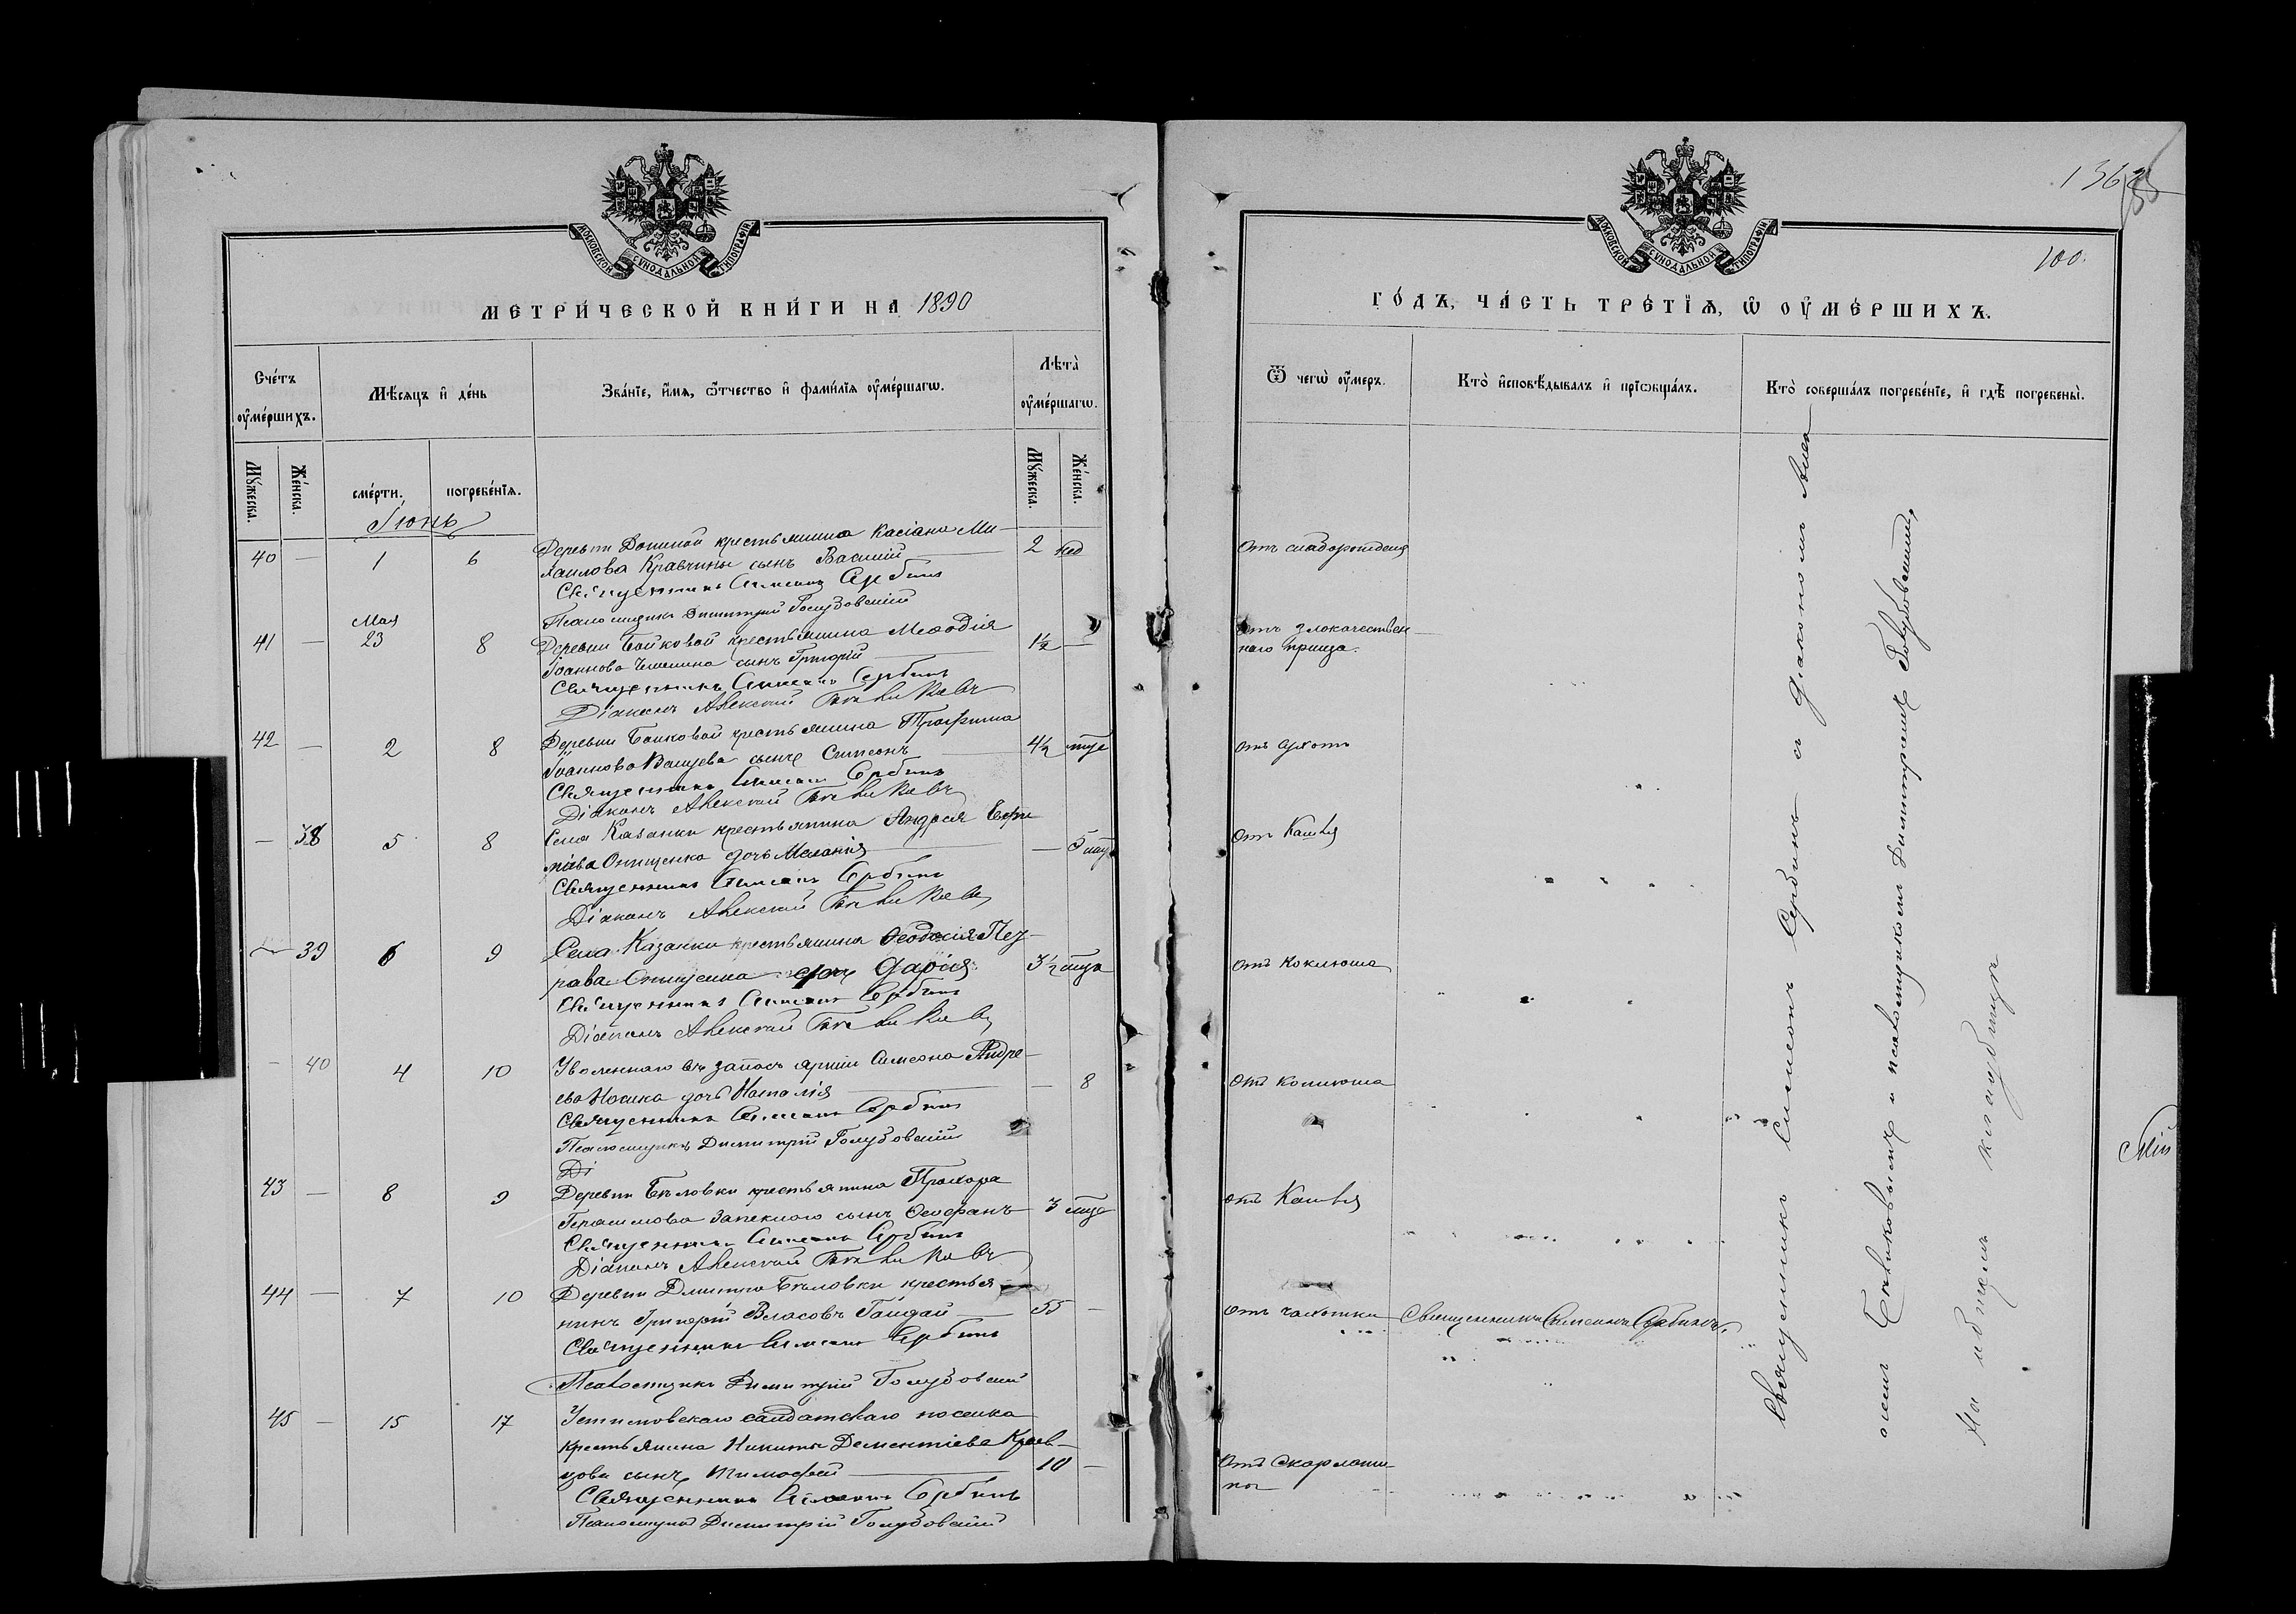 МОСКОВСКОЙ СѴНОДАЛЬНОЙ ТИПОГРАФІИ
МЕТРИ́ЧЕСКОЙ КНИ́ГИ НА 1890
Сче́тъ оу҆ме́ршихъ.
Мѣ́сяцъ и҆ де́нь
Зва́нїе, и҆́мѧ, ѻ҆́тчество и҆ фами́лїѧ оу҆ме́ршагѡ.
Лѣта̀ оу҆ме́ршагѡ.
Мꙋ́жеска.
Же́нска.
сме́рти.
погребе́нїѧ.
Мꙋ́жеска.
Же́нска.
Іюнь
40 — 1 6 Деревни крестьянина Касіана Ми- 2 нед
хаилова Кравчины сынъ Василій
Священникъ Симеонъ Сербинъ
Псаломщикъ Димитрій Голубовскій
Мая
41 — 23 8 Деревни Бойковой крестьянина Меѳодія 1½ —
Іоаннова сынъ Григорій
Священникъ Симеонъ Сербинъ
Діаконъ Алексій
42 — 2 8 Деревни Бойковой крестьянина Трофима 4½ мца
Іоаннова сынъ Симеонъ
Священникъ Симеонъ Сербинъ
Діаконъ Алексій
— 38 5 8 Села Казанки крестьянина Андрея Ефи-
міева Онищенка дочь Меланія — 5
Священникъ Симеонъ Сербинъ
Діаконъ Алексій
— 39 6 9 Села Казанки крестьянина Ѳеодосія Пет-
рова Онищенка дочь Дарія 3½ мца
Священникъ Симеонъ Сербинъ
Діаконъ Алексій
— 40 4 10 Уволеннаго въ запасъ арміи Симеона Андре-
ева Носика дочь Наталія — 8
Священникъ Симеонъ Сербинъ
Псаломщикъ Димитрій Голубовскій
Ді
43 — 8 9 Деревни Бѣловки крестьянина Прохора
Герасимова сынъ Ѳеофанъ 3 мца
Священникъ Симеонъ Сербинъ
Діаконъ Алексій
44 — 7 10 Деревни Дмитро Бѣловки крестья-
нинъ Григорій Власовъ Гайдай 55 —
Священникъ Симеонъ Сербинъ
Псаломщикъ Димитрій Голубовскій
45 — 15 17 Устиновскаго солдатскаго поселка
крестьянина Никиты Дементіева Крав-
цова сынъ Тимофей 10 —
Священникъ Симеонъ Сербинъ
Псаломщикъ Димитрій Голубовскій
100.
МОСКОВСКОЙ СѴНОДАЛЬНОЙ ТИПОГРАФІИ
ГО́ДЪ, ЧА́СТЬ ТРЕ́ТЇѦ, Ѡ҆ ОУ҆МЕ́РШИХЪ.
Ѿ чегѡ̀ оу҆́меръ.
Кто̀ и҆сповѣ́дывалъ и҆ прїѡбща́лъ.
Кто̀ соверша́лъ погребе́нїе, и҆ гдѣ̀ погребены̀.
Отъ слаборожденія
Отъ злокачествен-
наго прыща.
Отъ
Отъ Кашля
Отъ Коклюша
Отъ Коклюша
Отъ Кашля
Отъ чахотки Священникъ Симеонъ Сербинъ.
Отъ Скарлати-
ны
Священникъ Симеонъ Сербинъ съ діакономъ Алек
и псаломщикомъ Димитріемъ Голубовскимъ,
На общемъ кладбищѣ